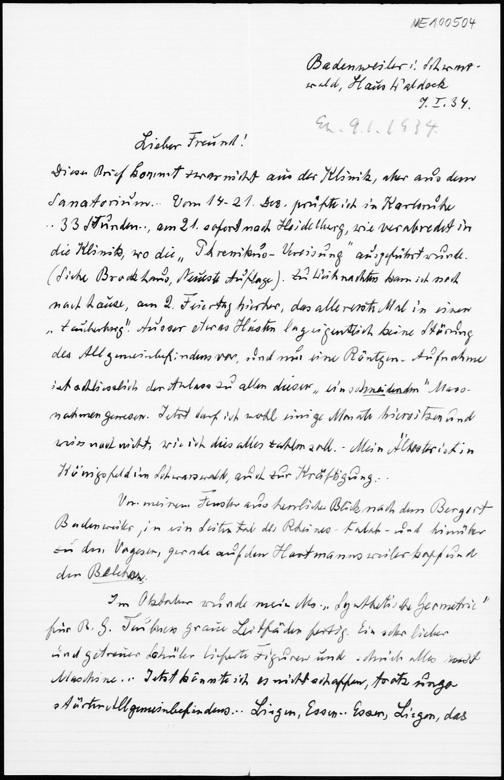 ME100504
Badenweiler i. Schwarz-
wald, Haus Waldeck
7. I. 34.
9.1.1934
Lieber Freund!
Dieser Brief kommt zwar nicht aus der Klinik, aber aus dem
Sanatorium.. Vom 14-21. Dez. prüfte ich in Karlsruhe
.. 33 Stunden.., am 21. sofort nach Heidelberg, wie verabredet in
die Klinik, wo die „Phrenikus-Vereisung" ausgeführt wurde.
(Siehe Brockhaus, Neueste Auflage). Zu Weihnachten kam ich noch
nach hause, am 2. Feiertag hierher, das allererste Mal in einen
„Zauberberg". Ausser etwas Husten lag eigentlich keine Störung
des Allgemeinbefindens vor, und nur eine Röntgen-Aufnahme
ist schliesslich der Anlass zu allen diesen „einschneidenden" Mass-
nahmen gewesen. Jetzt darf ich wohl einige Monate hier sitzen und
weiss noch nicht, wie ich dies alles zahlen soll. - Mein Ältester ist in
Königsfeld im Schwarzwald, auch zur Kräftigung..
Von meinem Fenster aus herrliche Blick nach dem Bergort
Badenweiler, in ein Seitental des Rheines - und hinüber
zu den Vogesen, gerade auf den Hartmannsweilerkopf und
den Belchen.
Im Oktober wurde mein Ms. „Synthetische Geometrie"
für B. G. Teubners graue Leitfäden fertig. Ein sehr lieber
und getreuer Schüler lieferte Figuren und schrieb alles mit
Maschine.. Jetzt könnte ich es nicht schaffen, trotz unge-
störten Allgemeinbefindens.. Liegen, Essen.. Essen, Liegen, das